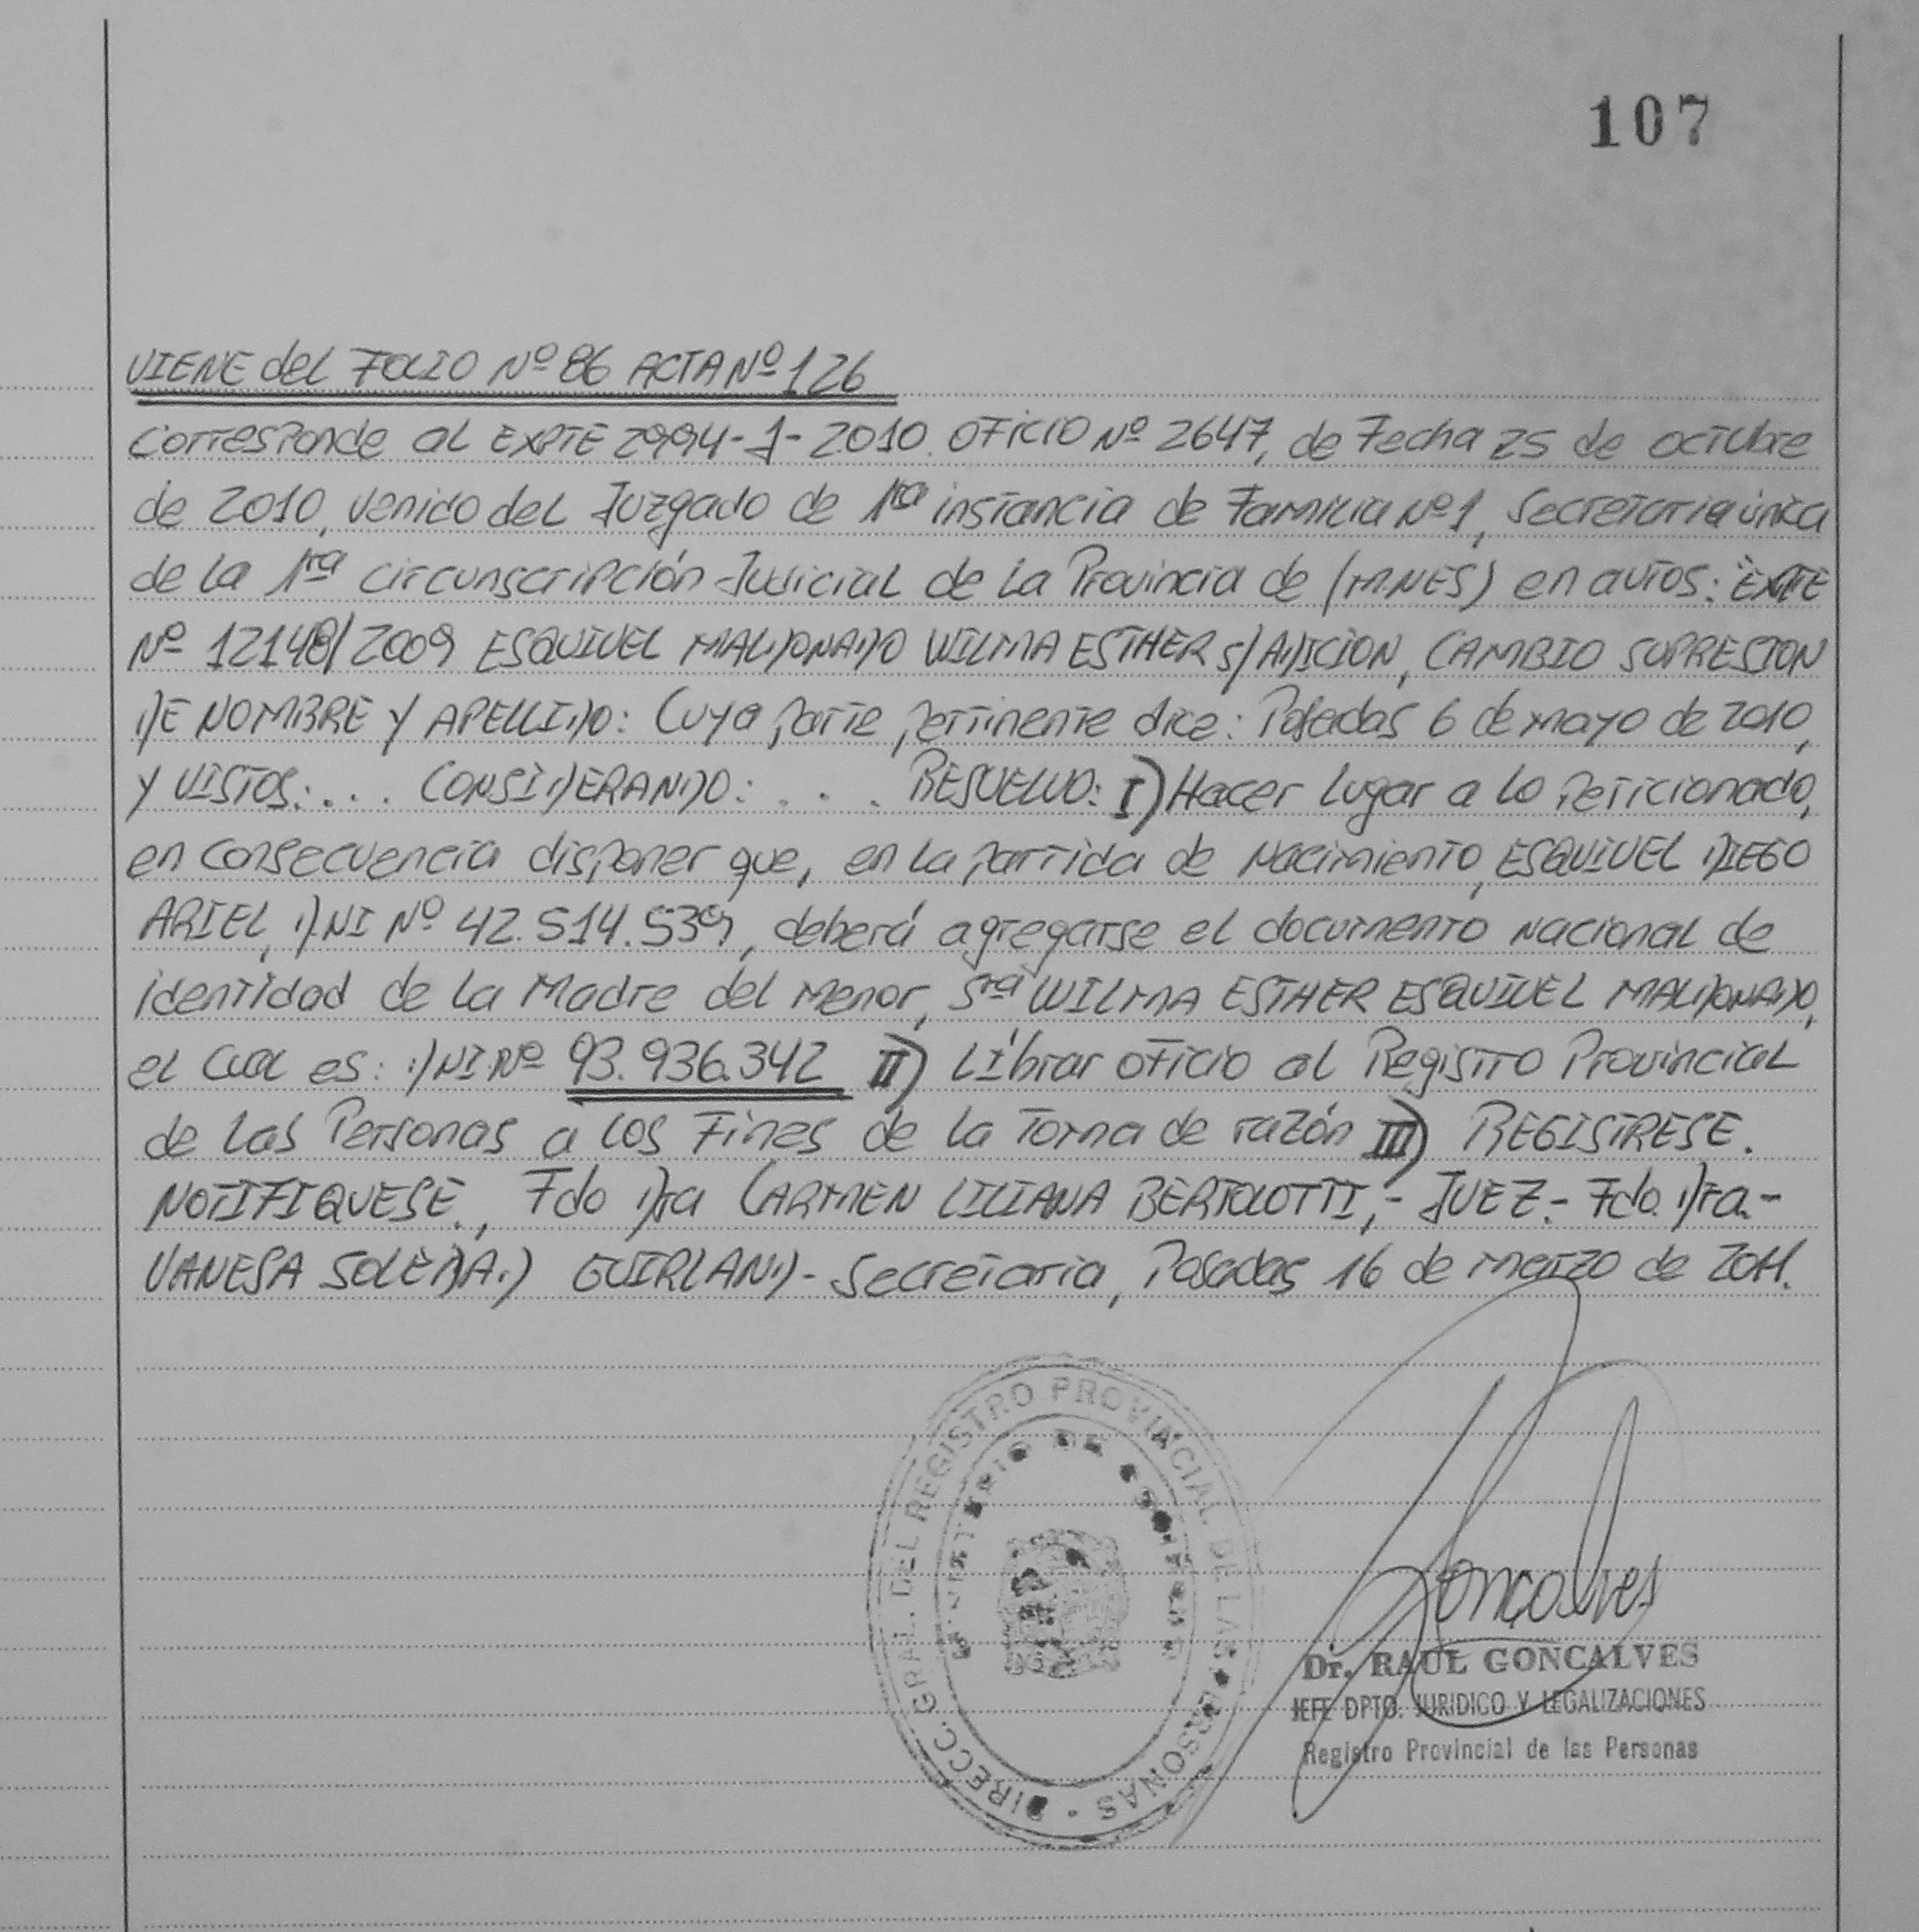 107
VIENE del FOLIO Nº 86 ACTA Nº 126
Corresponde al EXPTE 2994-J-2010. OFICIO Nº 2647, de Fecha 25 de octubre
de 2010, venido del Juzgado de 1ra instancia de Familia Nº1, Secretaria única
de la 1ra circunscripción Judicial de La Provincia de (MNES) en autos: "EXPTE
Nº 12148/2009 ESQUIVEL MALDONADO WILMA ESTHER S/ADICION, CAMBIO SUPRESION
DE NOMBRE Y APELLIDO: Cuya parte pertinente dice: Posadas 6 de mayo de 2010,
Y VISTOS:... CONSIDERANDO: . . . RESUELVO: I) Hacer lugar a lo Peticionado,
en consecuencia disponer que, en la partida de Nacimiento, ESQUIVEL DIEGO
ARIEL, DNI Nº 42.514.539, deberá agregarse el documento Nacional de
identidad de la Madre del Menor, Sra WILMA ESTHER ESQUIVEL MALDONADO,
el Cual es: DNI Nº 93.936.342 II) Líbrar oficio al Registro Provincial
de las Personas a los Fines de la Toma de razón III) REGISTRESE.
NOTIFIQUESE., Fdo Dra CARMEN LILIANA BERTOLOTTI,- JUEZ.- Fdo. Dra.-
VANESA SOLEDAD GUIRLAND- Secretaria, Posadas 16 de Marzo de 2011.
DIRECC. GRAL. DEL REGISTRO PROVINCIAL DE LAS PERSONAS
MINISTERIO DE GOBIERNO
Goncalves
Dr. RAUL GONCALVES
JEFE DPTO. JURIDICO Y LEGALIZACIONES
Registro Provincial de las Personas